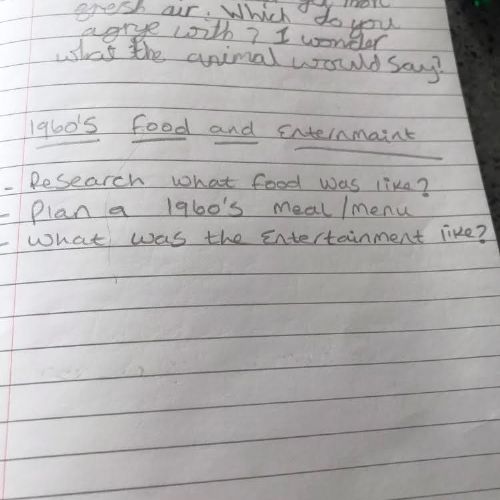 fresh air. Which do you
agrye with? I wonder
what the animal would say?
1960's Food and Enternmaint
- Research what food was like?
- Plan a 1960's meal/menu
- What was the Entertainment like?